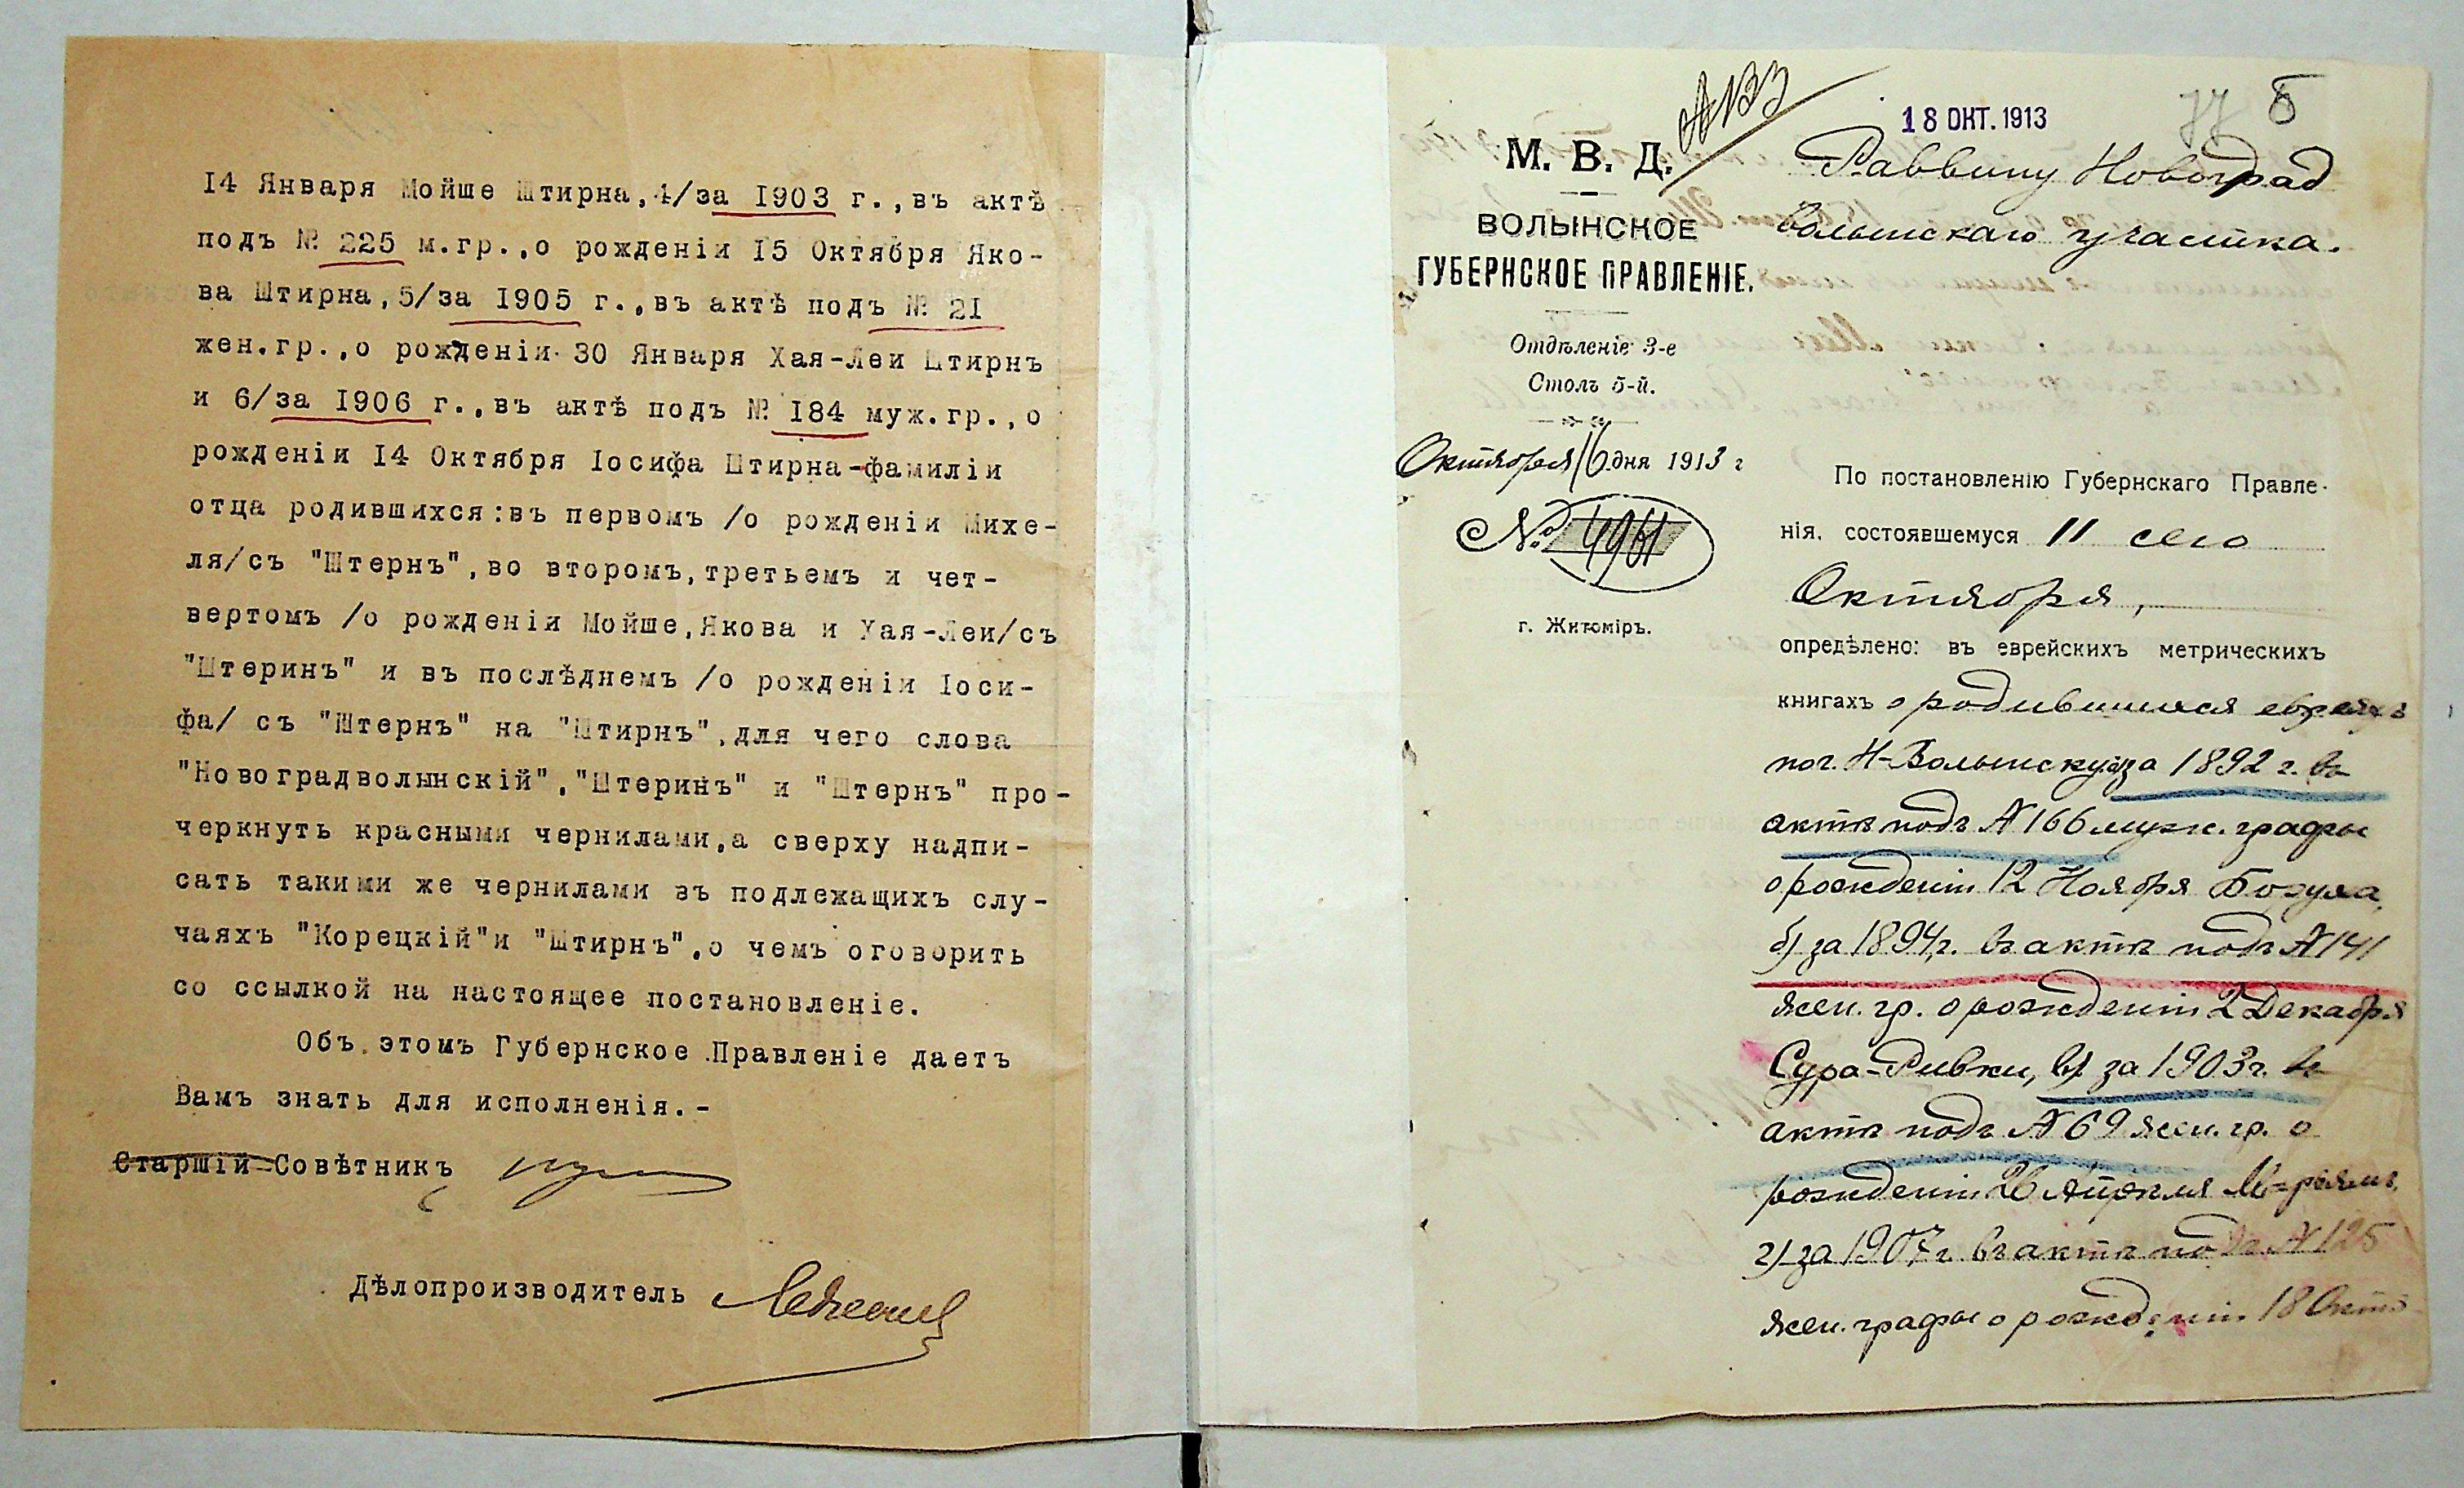 14 Января Мойше Штирна, 4/за 1903 г., въ актѣ
подъ № 225 м.гр., о рожденіи 15 Октября Яко-
ва Штирна, 5/за 1905 г., въ актѣ подъ № 21
жен.гр., о рожденіи 30 Января Хая-Леи Штирнъ
и 6/за 1906 г., въ актѣ подъ № 184 муж.гр., о
рожденіи 14 Октября Іосифа Штирна-фамиліи
отца родившихся: въ первомъ /о рожденіи Михе-
ля/съ "Штернъ", во второмъ, третьемъ и чет-
вертомъ /о рожденіи Мойше, Якова и Хая-Леи/съ
"Штеринъ" и въ послѣднемъ /о рожденіи Іоси-
фа/ съ "Штернъ" на "Штирнъ", для чего слова
"Новоградволынскій", "Штеринъ" и "Штернъ" про-
черкнуть красными чернилами, а сверху надпи-
сать такими же чернилами въ подлежащихъ слу-
чаяхъ "Корецкій" и "Штирнъ", о чемъ оговорить
со ссылкой на настоящее постановленіе.
Объ этомъ Губернское Правленіе даетъ
Вамъ знать для исполненія.-
Старшій Совѣтникъ
Дѣлопроизводитель
18 ОКТ. 1913
77 Б
М. В. Д.
ВОЛЫНСКОЕ
ГУБЕРНСКОЕ ПРАВЛЕНІЕ.
Отдѣленіе 3-е
Столъ 5-й.
Октября 16 дня 1913 г
№ 4961
г. Житоміръ.
Раввину Новоград
волынскаго участка.
По постановленію Губернскаго Правле-
нія, состоявшемуся 11 сего
Октября,
опредѣлено: въ еврейскихъ метрическихъ
книгахъ о родившихся евреяхъ
по г. Н-Волынску за 1892 г. въ
актѣ подъ № 166 муж. графы
о рожденіи 12 Ноября
б) за 1894 г. въ актѣ подъ № 141
жен. гр. о рожденіи 2 Декабря
Сура-Ривки, в) за 1903 г. въ
актѣ подъ № 69 жен. гр. о
рожденіи 26 Апрѣля
г) за 1907 г. въ актѣ подъ № 125
жен. графы о рожденіи 18 Октя